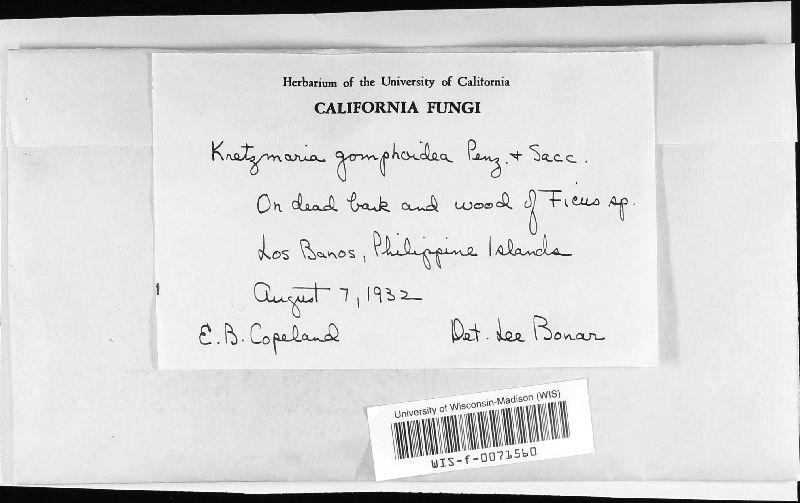 Herbarium of the University of California
CALIFORNIA FUNGI
Kretzmaria gomphoidea Penz. + Sacc.
On dead bark and wood of Ficus sp.
Los Banos, Philippine Islands
August 7, 1932
E. B. Copeland Det. Lee Bonar
University of Wisconsin-Madison (WIS)
WIS-f-0071560